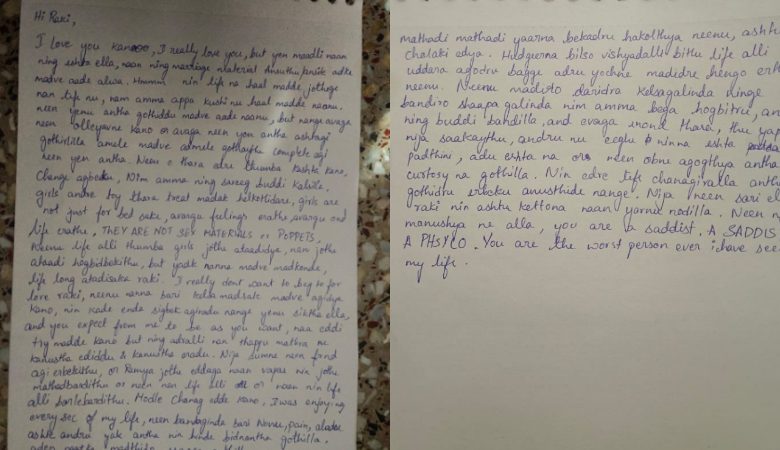 Hi Raki,
I love you kanooo, I really love you, but yen maadli naan
ning eshta ella, naan ning marriage material anuthu adke
madve aade alwa. Hmmm nin life na haal madde jothge
nan life nu, nam amma appa kushi nu haal madde naanu.
neen yenu antha gothiddu madve aade naanu, but nange avaga
neen olleyavne kano or avaga neen yen antha ashtagi
gothirlilla amele madve admele gothaythu complete agi
neen yen antha. Neen e thara adru thumba kashta kano,
Change agbeku, Nim amma ning sareeg buddi kalsila,
girls andre toy thara treat madak helkottidare, girls are
not just for bed saku, avargu feelings erathe, avargu ond
life erathe, THEY ARE NOT SEX MATERIALS or PUPPETS,
Neenu life alli thumba girls jothe ataadidya, nan jothe
ataadi hogbidbekithu, but yadk nanna madve madkonde,
life long atadisaka raki. I really dont want to beg to for
love raki, neenu nanna bari kelsa madsake madve agidya
kano, nin kade enda sigbek agiradu nange yenu siktha ella,
and you expect from me to be as you want, naa eddi
try madde kano but ning adralli nan thappu mathra ne
kanustha ediddu & kanustha eradu. Nija sumne neen frnd
agi erbekithu, or Ramya jothe eddaga naan vapas nin jothe
mathadbardithu or neen nan life alli or naan nin life
alli barlebardithu. Modle Chanag edde kano, I was enjoying
every sec of my life, neen bandaginda bari Novu, pain, alodu
ashte andru yak antha nin hinde bidnantha gothilla,
mathadi mathadi yaarna bekadru hakolthya neenu, ashtu
chalaki edya. Hudgeerna bilso vishyadalli bittu life alli
uddara agodru bagge adru yochne madidre hengo
neenu. Neenu madisto daridra kelsagalinda ninge
bandiro shaapa galinda nim amma bega hogbitru,
ning buddi bandilla, and evaga inond thara, thu
nija saakaythu, andru nu eeglu ninna eshta
padthini, adu eshta na or neen obne agogthya antha
custosy na gothilla. Nin edre life chanagiralla
gothidru erbeku anusthide nange. Nija neen sari
raki nin ashtu kettona naan yarnu nodilla. Neen
manushya ne alla, you are a saddist, A SADDIS
A PHSYCO. You are the worst person ever i have see
my life.